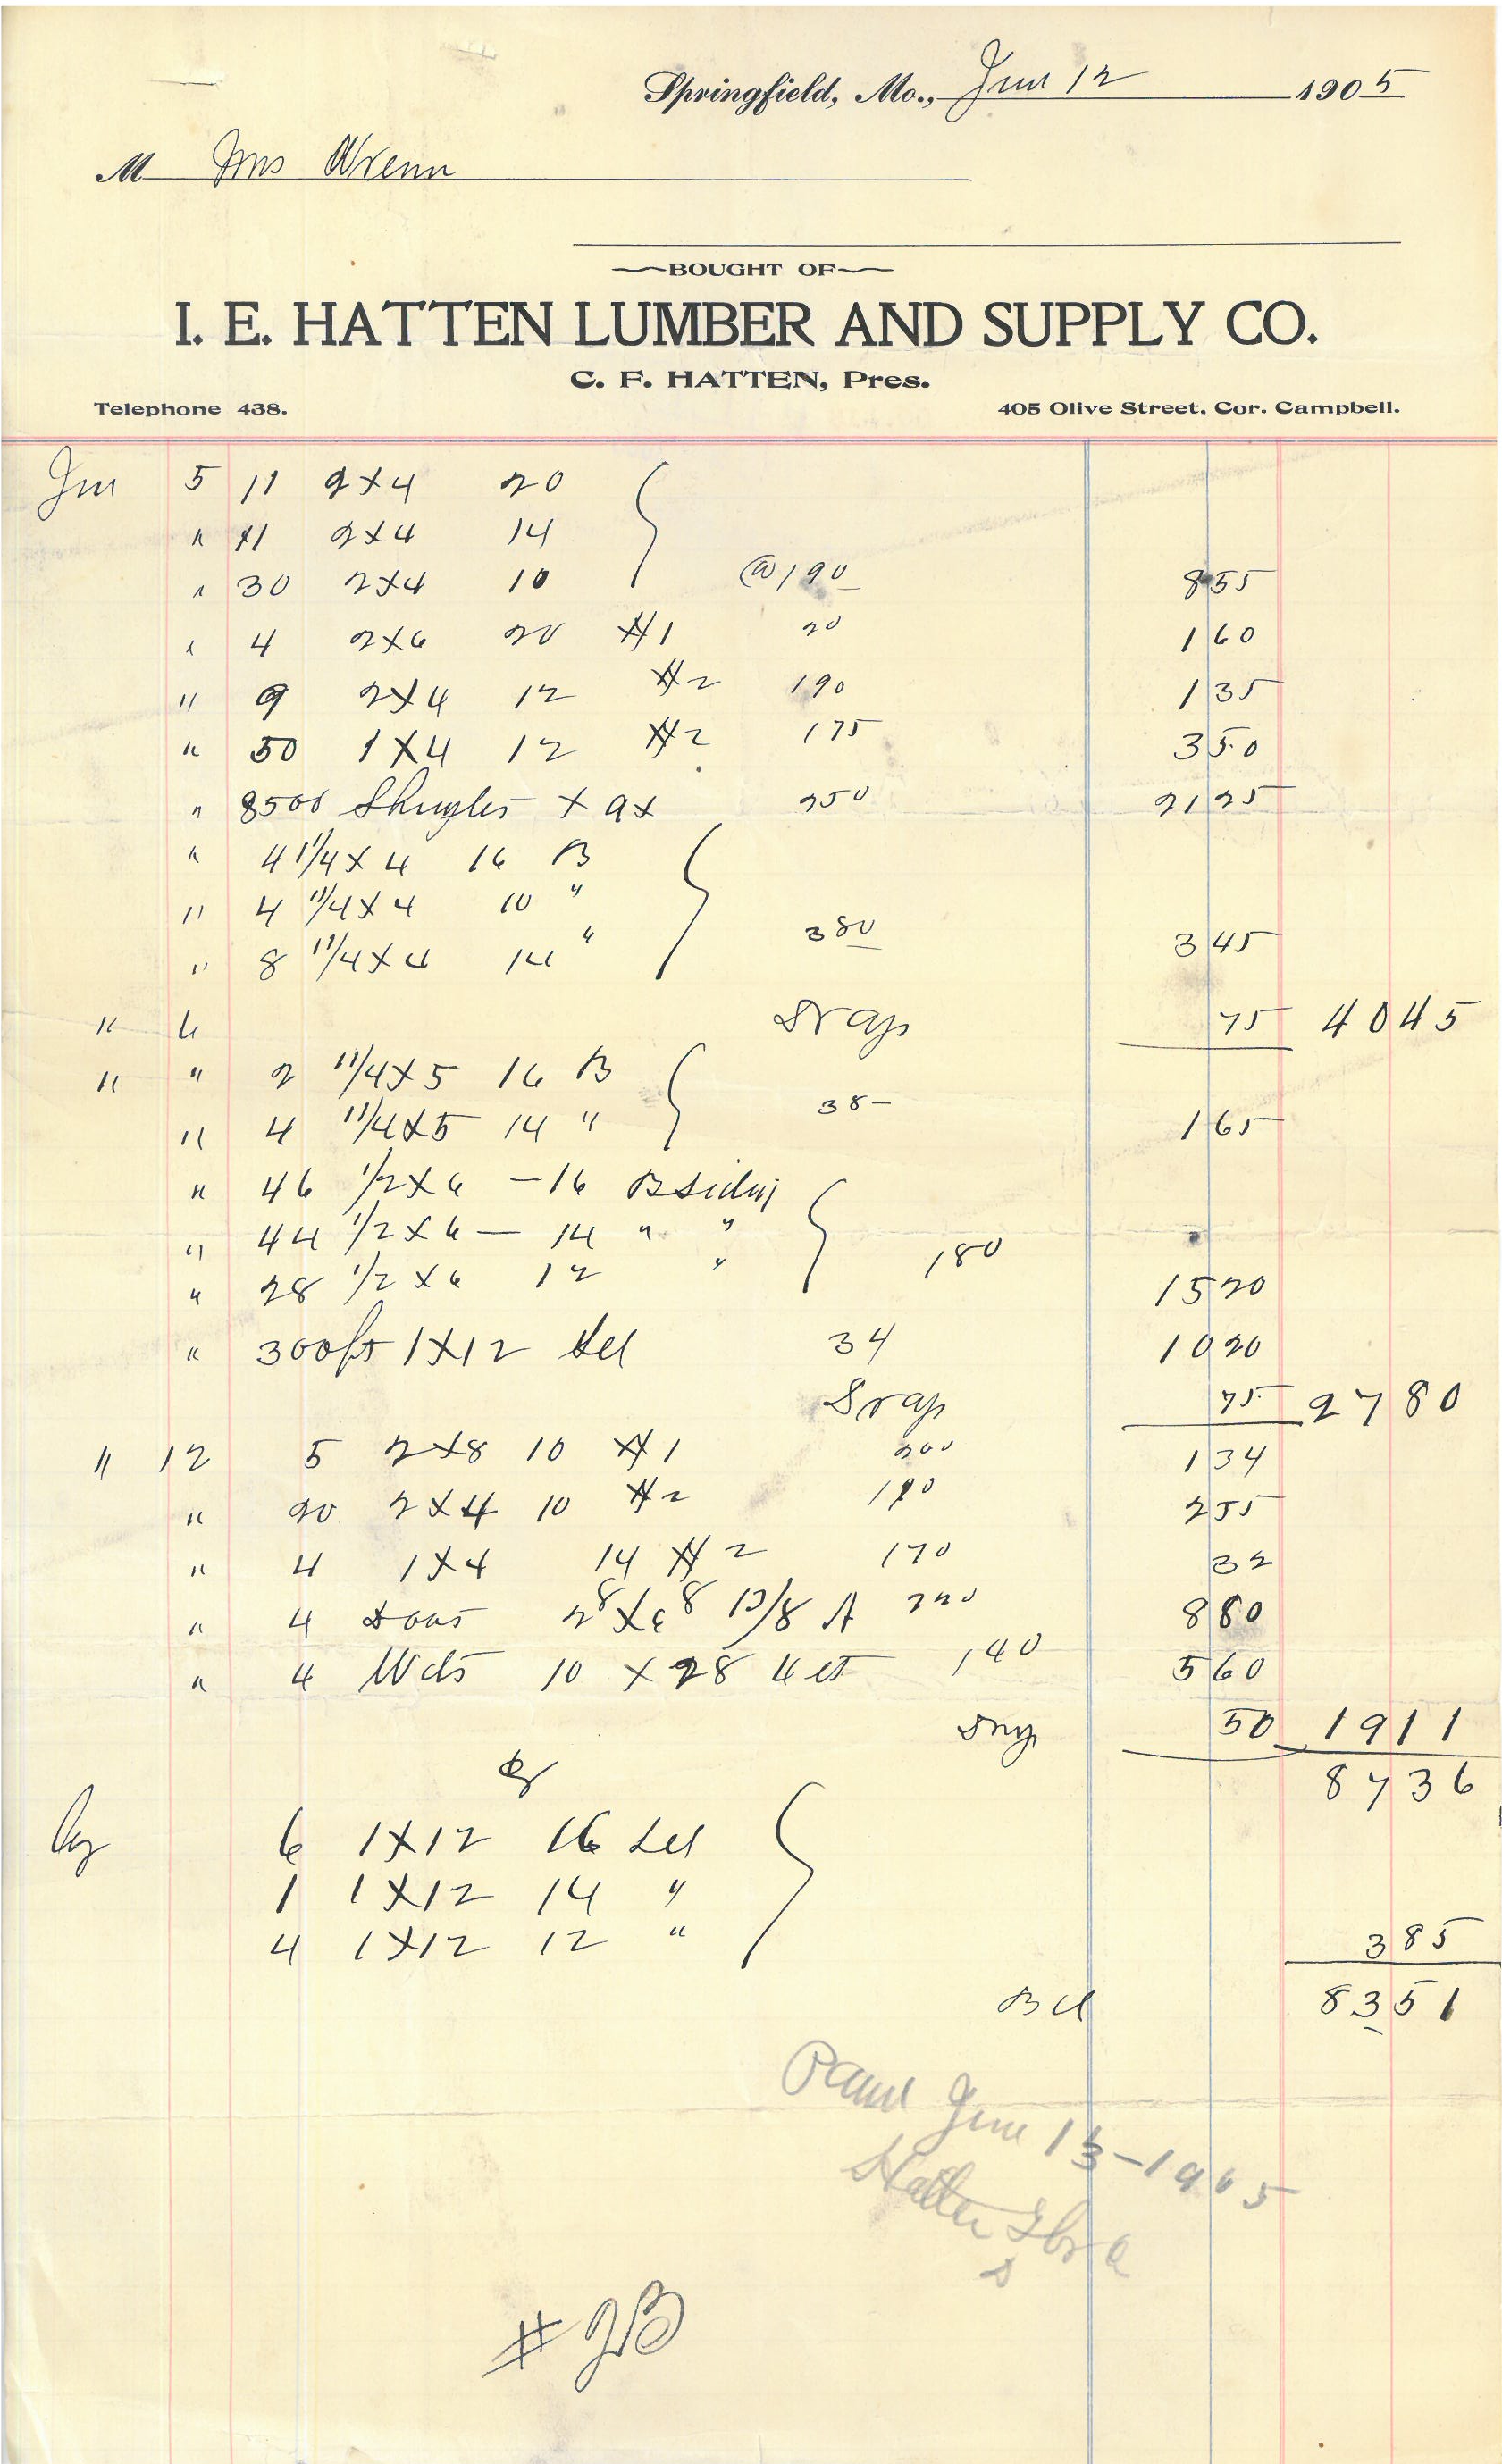 Springfield, Mo., Jun 12 1905
M Mrs Wrenn
BOUGHT OF
I. E. HATTEN LUMBER AND SUPPLY CO.
C. F. HATTEN, Pres.
Telephone 438. 405 Olive Street, Cor. Campbell.
Jun 5 11 2x4 20
" 11 2x4 14
" 30 2x4 10 @ 190 8 55
" 4 2x6 20 #1 20 1 60
" 9 2x4 12 #2 190 1 35
" 50 1x4 12 #2 175 3 50
" 8500 Shingles x ax 250 21 25
" 4 1 1/4 x 4 16 B
" 4 1 1/4 x 4 10 "
" 8 1 1/4 x 4 14 " 380 3 45
" 6 Dray 75 40 45
" " 2 1 1/4 x 5 16 B
" 4 1 1/4 x 5 14 " 38- 1 65
" 46 1/2 x 6 - 16 B Siding
" 44 1/2 x 6 - 14 " "
" 28 1/2 x 6 12 " 180 15 20
" 300 ft 1x12 34 10 20
Dray 75 27 80
" 12 5 2x8 10 #1 200 1 34
" 20 2x4 10 #2 190 2 55
" 4 1x4 14 #2 170 32
" 4 Doors 2 8 x 6 8 1 3/8 A 220 8 80
" 4 Wds 10 x 28 4 lt 140 5 60
Dray 50 19 11
87 36
Cr
By 6 1x12 16
1 1x12 14 "
4 1x12 12 " 3 85
Bal 83 51
Paid June 13-1905
Hatten Lbr Co